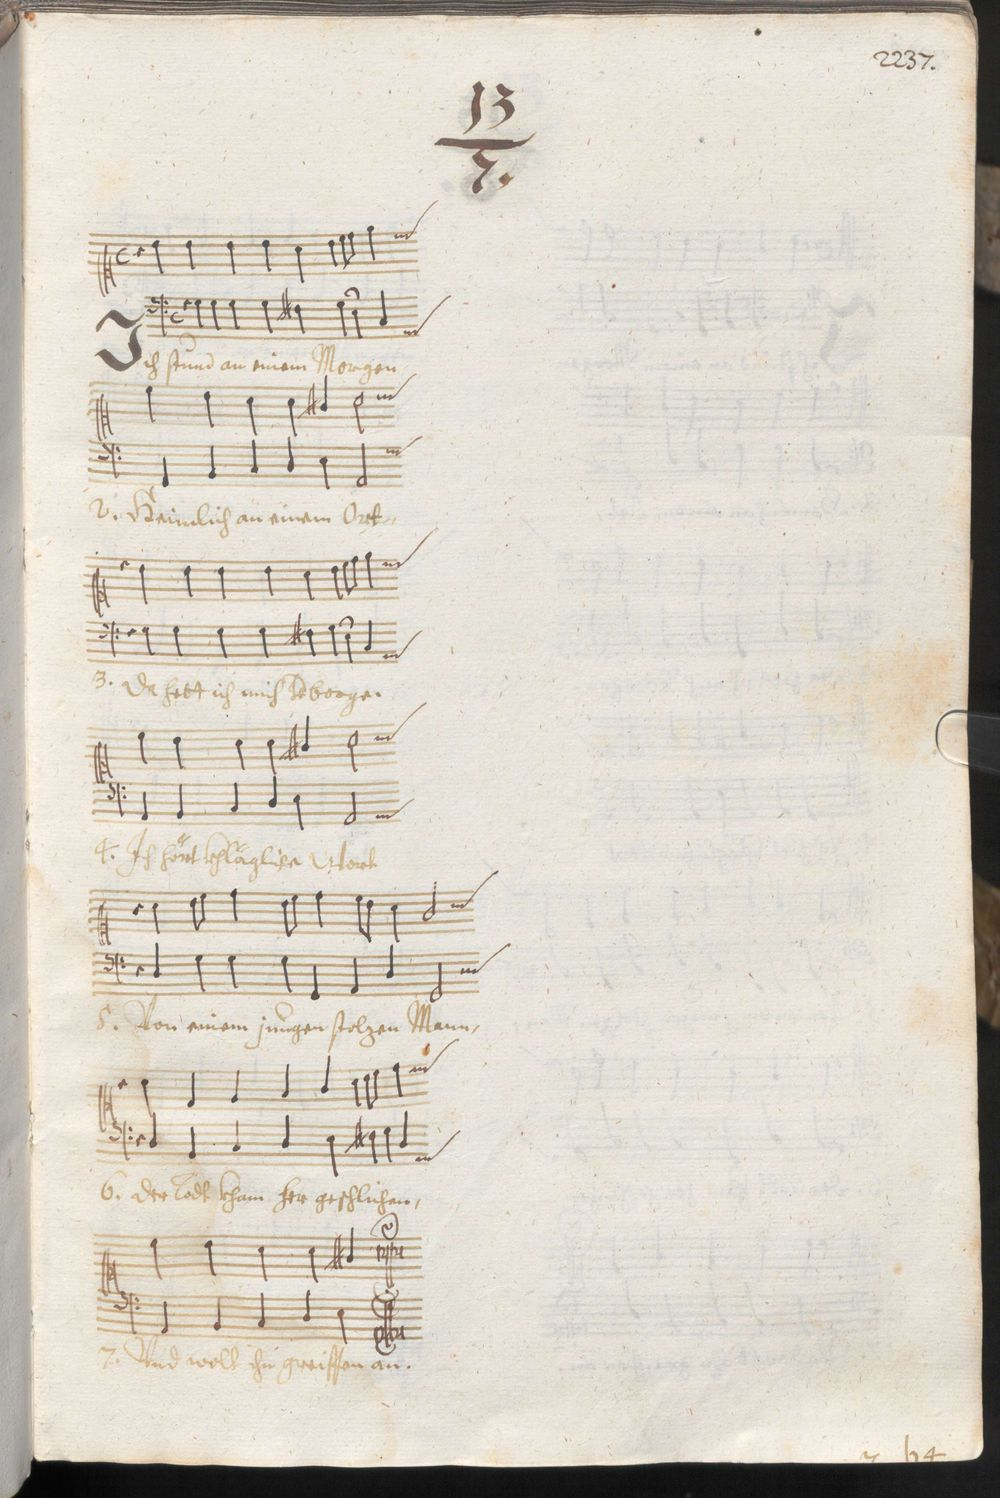 2237.
13
7.
Ich stund an einem Morgen,
2. Heimlich an einem Ort,
3. Da hett ich mich verborge.
4. Ich hört khlägliche Wort
5. Von einem jungen stolzen Mann,
6. Der Todt kham her geschlichen,
7. Und wolt ihn greiffen an.